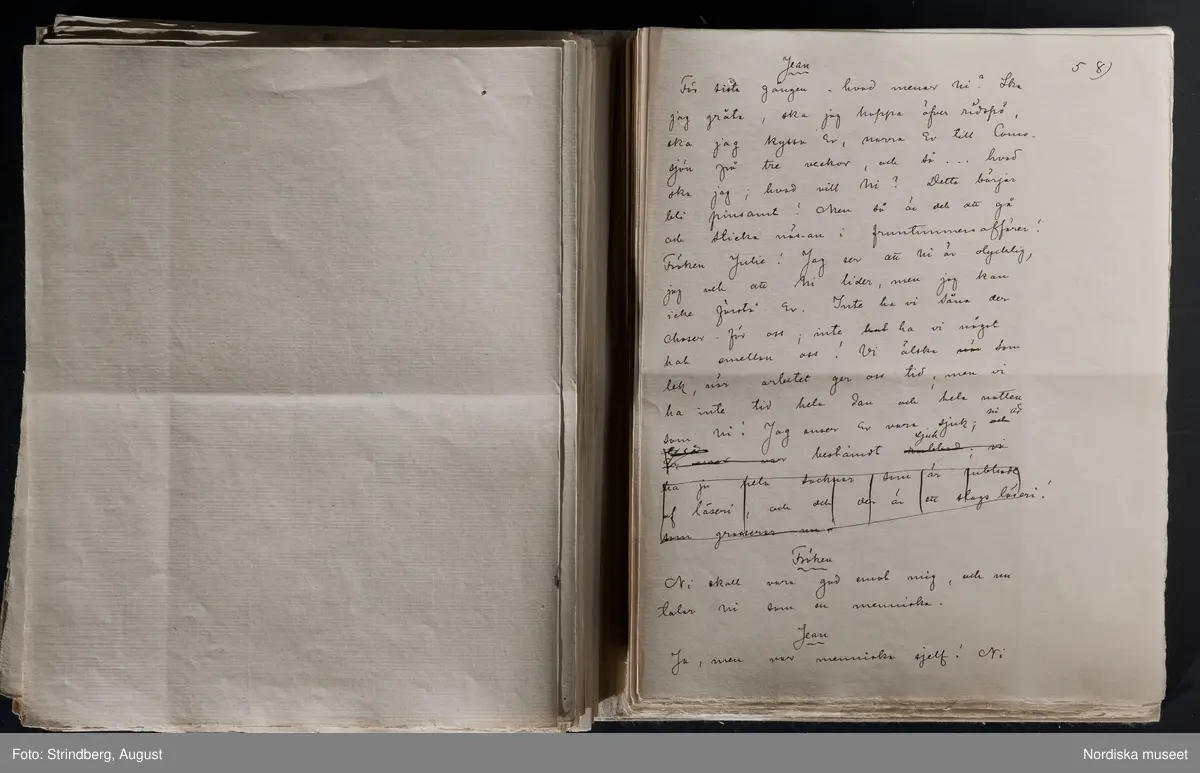 58)
Jean
För sista gången – hvad menar Ni? Ska
jag gråta, ska jag hoppa öfver ridspö,
ska jag kyssa Er, narra Er till Como-
sjön på tre veckor, och så ... hvad
ska jag; hvad vill Ni? Detta börjar
bli pinsamt! Men så är det att gå
och sticka näsan i fruntimmersaffärer!
Fröken Julie! Jag ser att Ni är olycklig,
jag vet att Ni lider, men jag kan
icke förstå Er. Inte ha vi såna der
choser för oss; inte hat ha vi något
hat emellan oss! Vi älska som
lek, när arbetet ger oss tid, men vi
ha inte tid hela dan och hela natten
som Ni! Jag anser Er vara sjuk; och
ni är
sjuk
bestämdt ; vi
ha ju hela socknar som är
af läseri, och det der är ett slags läseri!
som grasserar nu.
Fröken
Ni skall vara god emot mig, och nu
talar Ni som en menniska.
Jean
Ja, men var menniska sjelf! Ni
Foto: Strindberg, August
Nordiska museet